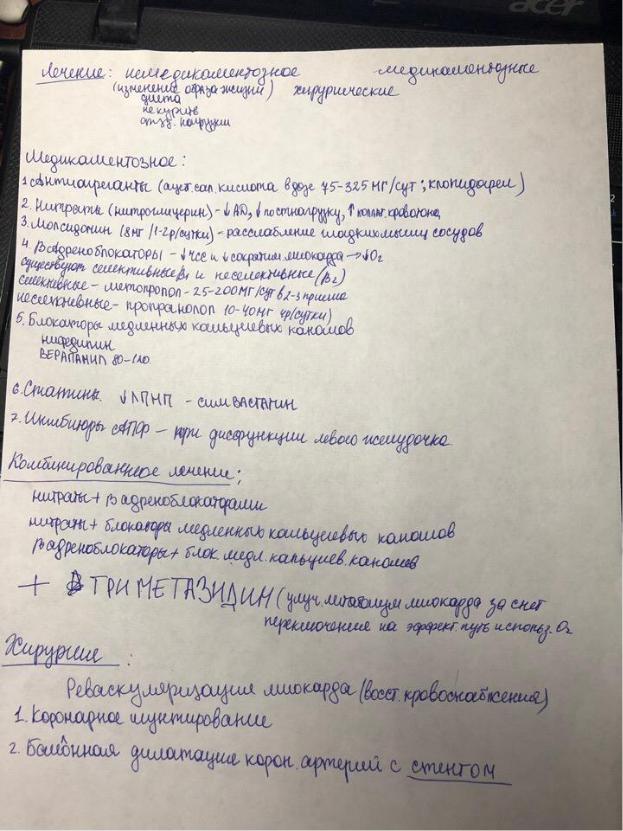 acer
Лечение: немедикаментозное медикаментозные
(изменение образа жизни) хирургические
диета
не курить
физ. нагрузки
Медикаментозное:
1. Антиагреганты (ацет. сал. кислота в дозе 75-325 мг/сут; клопидогрел)
2. Нитраты (нитроглицерин) - ↓АД, ↓постнагрузку, ↑коллат. кровоток
3. Молсидомин (8мг/1-2р/сутки) - расслабление гладких мышц сосудов
4. B Адреноблокаторы - ↓ЧСС и ↓сократим миокарда → ↓O₂
существуют селективные β₁ и неселективные (β₂)
селективные - метопролол - 25-200 мг/сут в 2-3 приема
неселективные - пропранолол 10-40 мг 4р/сутки)
5. Блокаторы медленных кальциевых каналов
нифедипин
ВЕРАПАМИЛ 80-
6. Статины ↓ЛПНП - симВАСТАТИН
7. Ингибиторы АПФ - при дисфункции левого желудочка
Комбинированное лечение:
нитраты + β адреноблокаторами
нитраты + блокаторы медленных кальциевых каналов
β адреноблокаторы + блок. медл. кальциев. каналов
+ ТРИМЕТАЗИДИН (улуч. метаболизм миокарда за счет
переключения на эффект. путь использ. O₂
Хирургия:
Реваскуляризация миокарда (восст. кровоснабжения)
1. Коронарное шунтирование
2. Баллонная дилатация корон. артерий с стентом